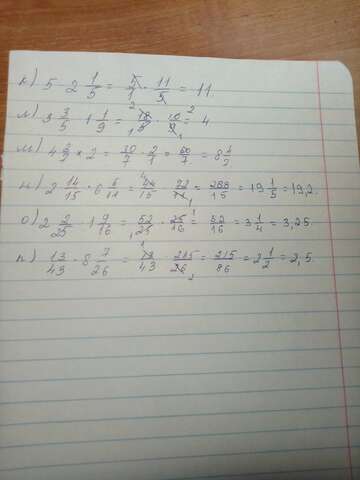 к) 5 · 2 1/5 = 5/1 · 11/5 = 11
л) 3 3/5 · 1 1/9 = 18/5 · 10/9 = 4
м) 4 2/7 × 2 = 30/7 · 2/1 = 60/7 = 8 4/7
н) 2 14/15 · 6 6/11 = 44/15 · 72/11 = 288/15 = 19 1/5 = 19,2.
о) 2 2/25 · 1 9/16 = 52/25 · 25/16 = 52/16 = 3 1/4 = 3,25.
п) 13/43 · 8 7/26 = 13/43 · 215/26 = 215/86 = 2 1/2 = 2,5.